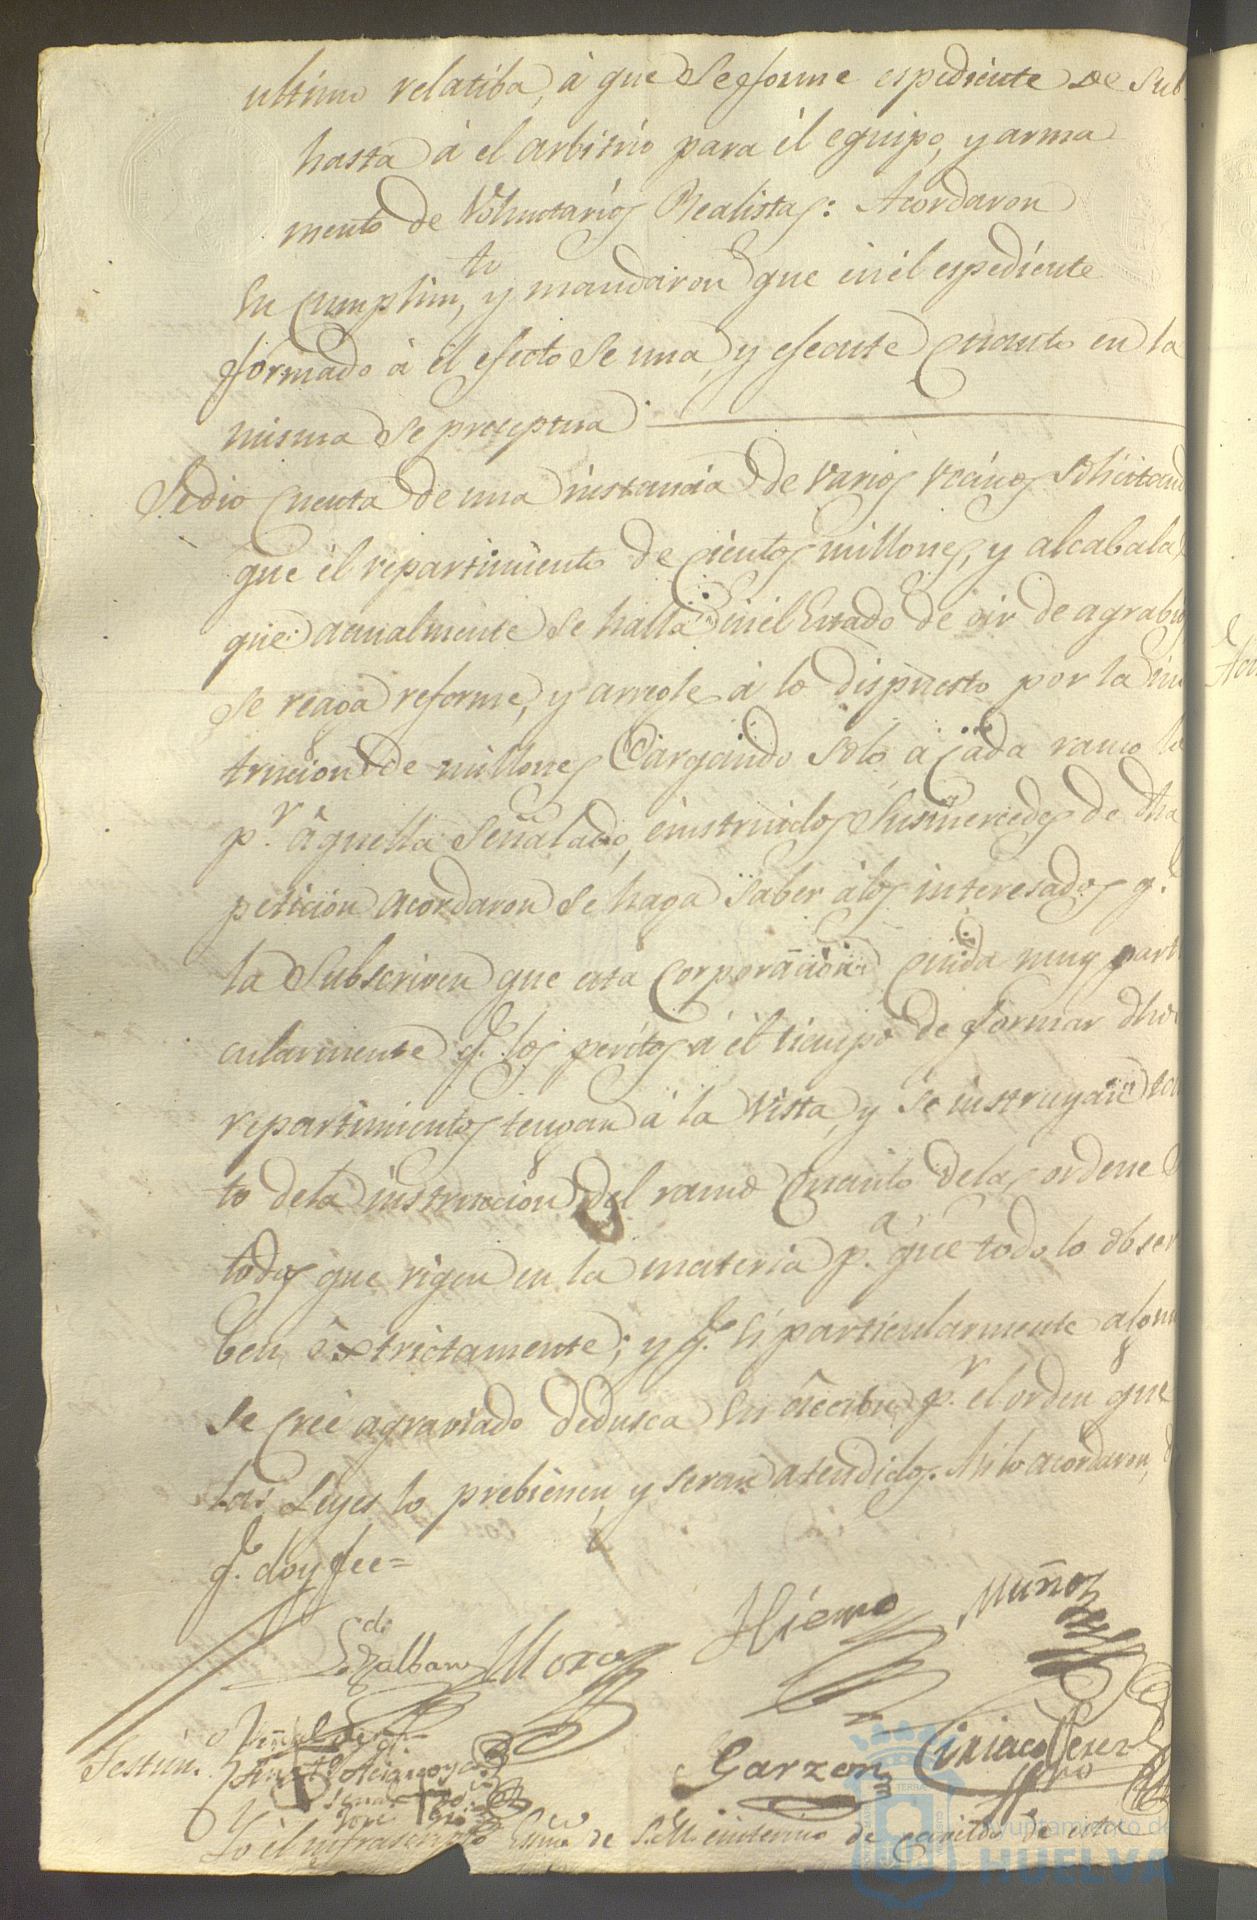 ultimo relatiba, á que se forme espediente de sub
hasta á el arbitrio para él equipo, y arma
mento de Voluntarios Realistas: Acordaron
su cumplim.to, y mandaron que en él espediente
formado á él efecto se una, y esecute cuanto en la
misma se preceptua
Se dio cuenta de una instancia de varios vecinos solicitand
que él repartimiento de cientos millones, y alcabala
que actualmente se halla en él Estado de oir de agrabios
se reaga reforme, y arregle á lo dispuesto por la ins
truccion de millones Cargando solo a cada ramo lo
p.r aquella señalado, é instruidos sus mercedes de dha
peticion acordaron se haga saber á los interesados q.e
la subscriven que esta Corporacion cuida muy parti
cularmente q.e los peritos á él tiempo de formar dhos
repartimientos tengan á la vista, y se instruyan tan
to de la instruccion del ramo cuanto de las ordene
todas que rigen en la materia p.a que todo lo obser
ben extrictamente; y q.e si particularmente alguno
se creé agraviado dedusca su accion p.r el orden que
las Leyes lo prebienen, y seran atendidos. Asi lo acordaron, d
q.e doy fee=
Muñoz
Hierro
Moro
Garzon
Ciriaco
Yo él infrascripto Essno de S.M. é interino de cavildo de esta
Ayuntamiento de
HUELVA